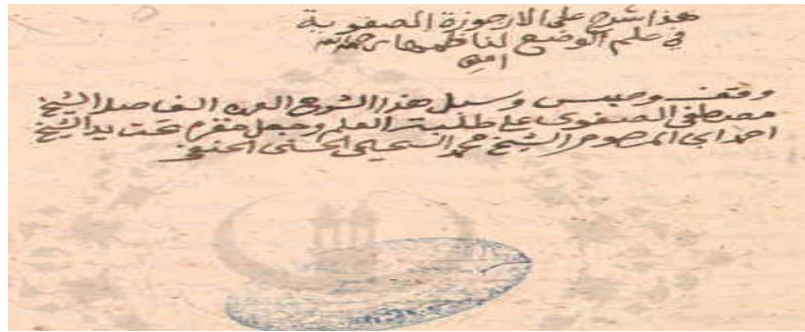 هذا شرح على الارجوزة الصفوية
في علم الوضع لناظمها رحمه الله
امين
وقف وحبس وسبل هذا الشرح العمدة الفاضل الشيخ
مصطفى الصفوى على طلبة العلم وجعل مقره تحت يد الشيخ
احمد ابى المرحوم الشيخ محمد السحيمى الحسنى الحنفى